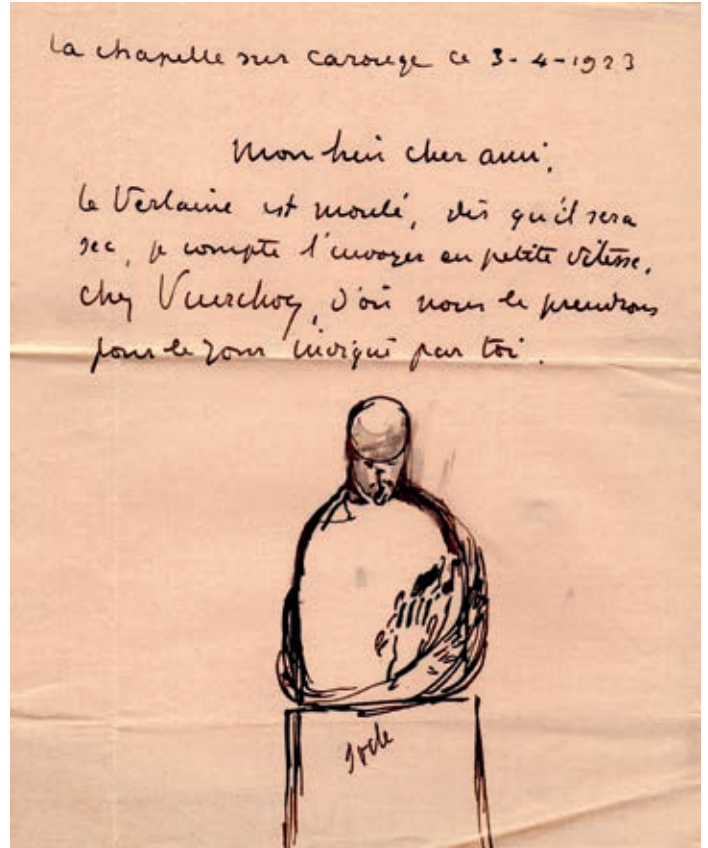 La chapelle sur Carouge ce 3-4-1923
Mon bien cher ami,
le Verlaine est moulé, dès qu'il sera
sec, je compte l'envoyer en petite vitesse,
chez d'où nous le prendrons
pour le jour indiqué par toi.
socle